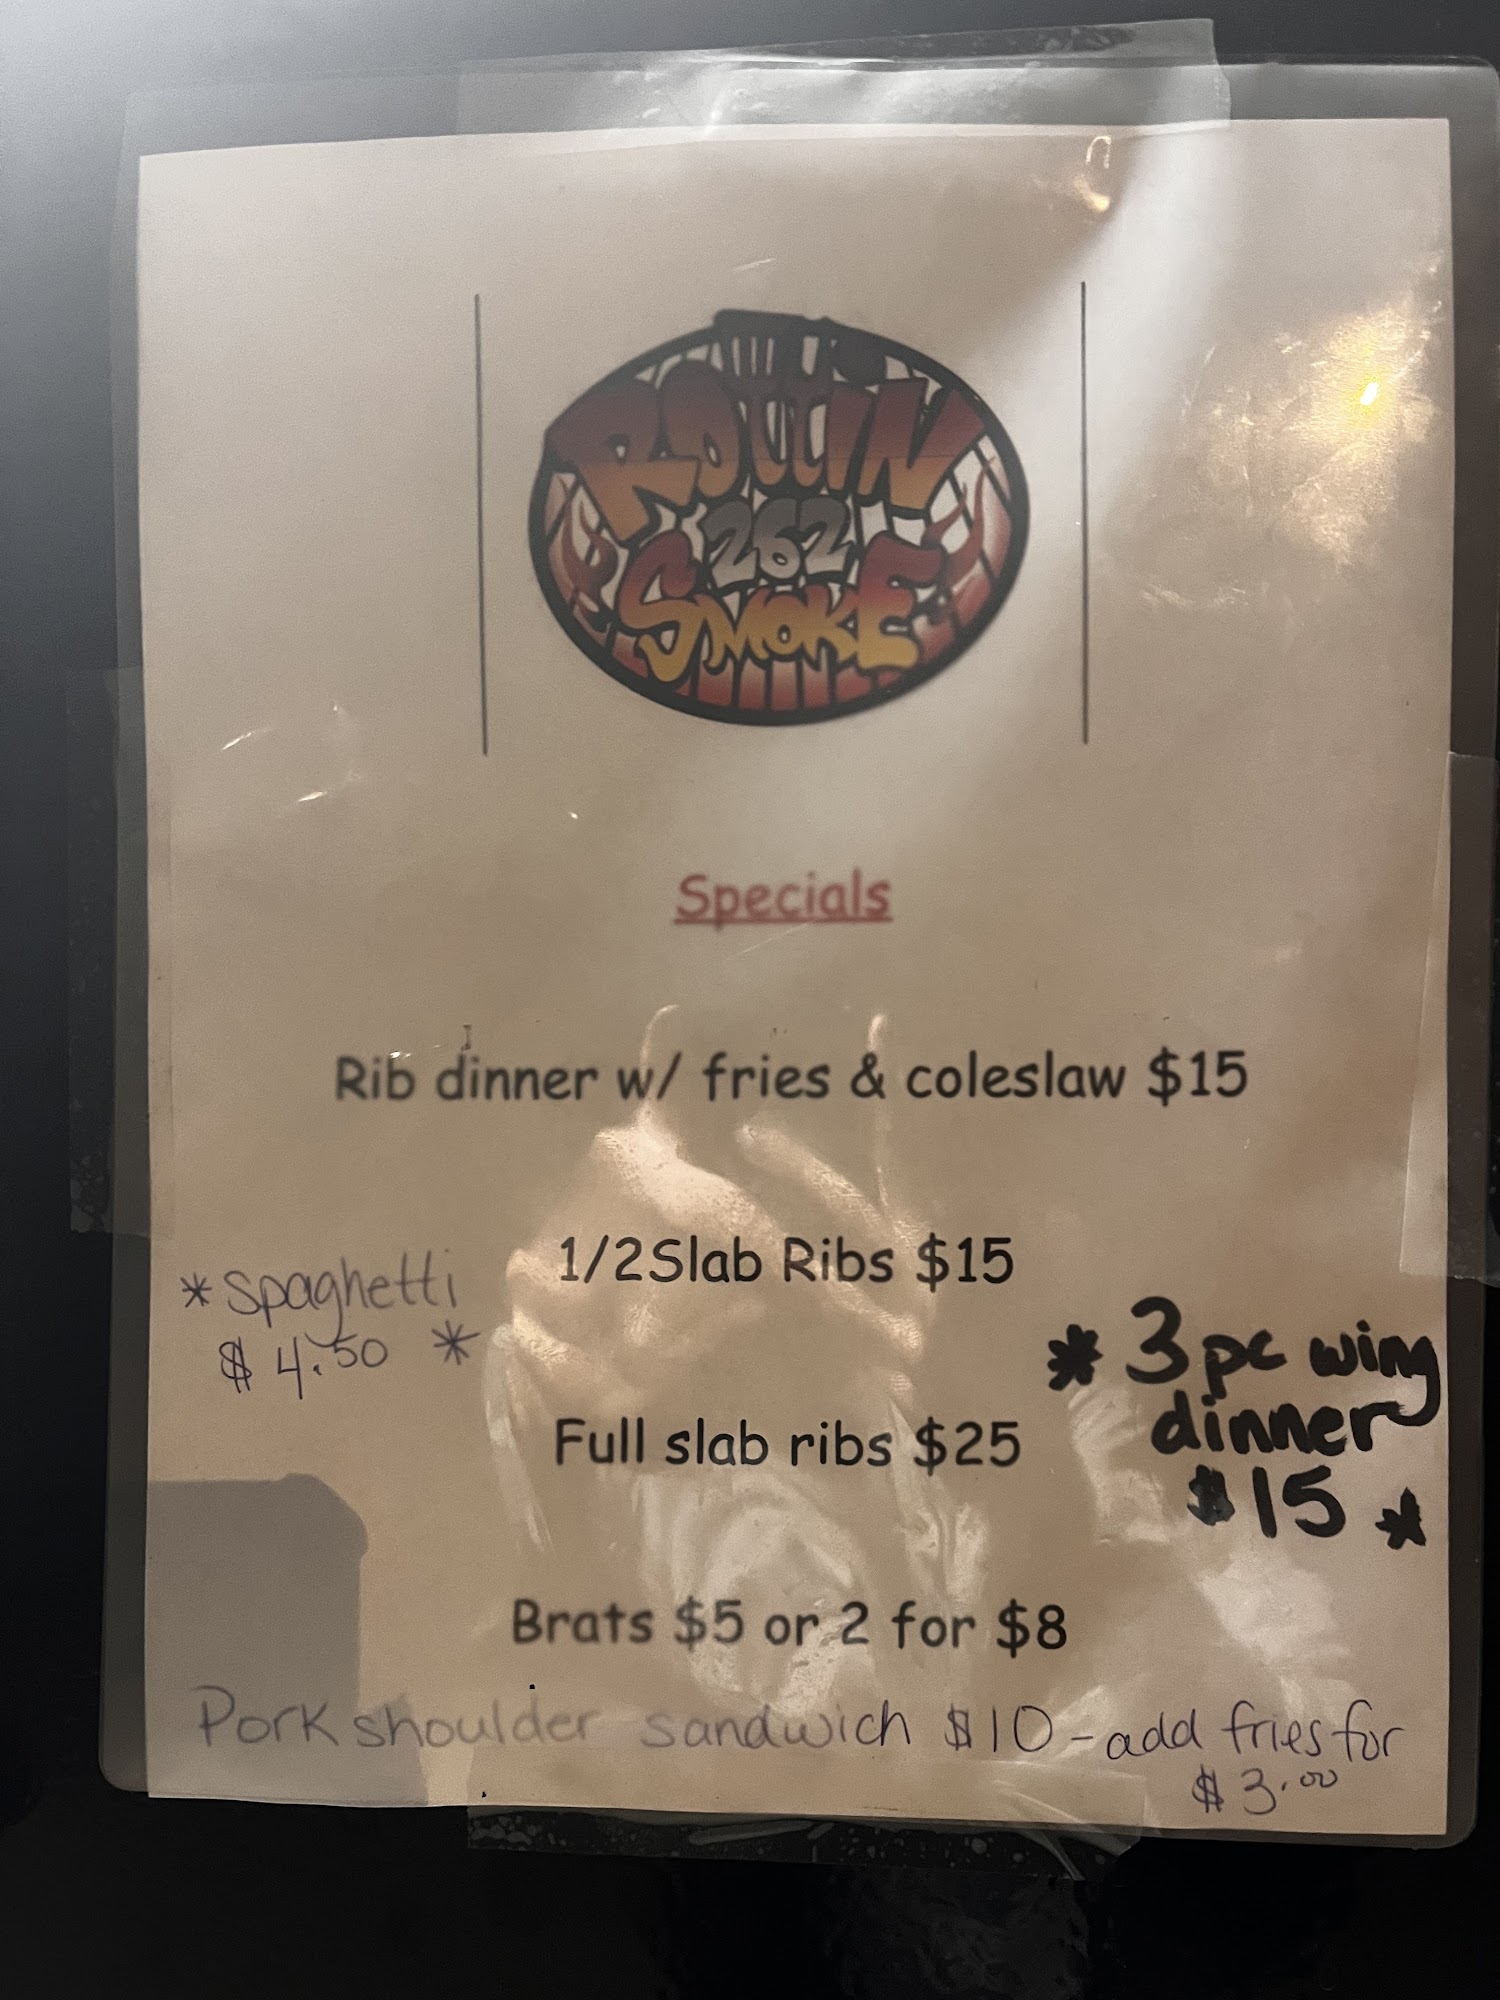 ROTTIN
262
SMOKE
Specials
Rib dinner w/ fries & coleslaw $15
1/2Slab Ribs $15
* Spaghetti
$ 4.50 *
* 3 pc wing
dinner
$15 *
Full slab ribs $25
Brats $5 or 2 for $8
Pork shoulder sandwich $10 - add fries for
$ 3.00